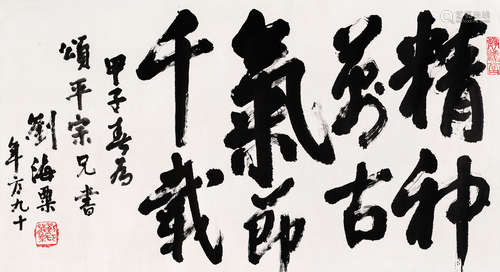 精神
萬古
氣節
千載
甲子春為
頌平宗兄書
劉海粟
年方九十